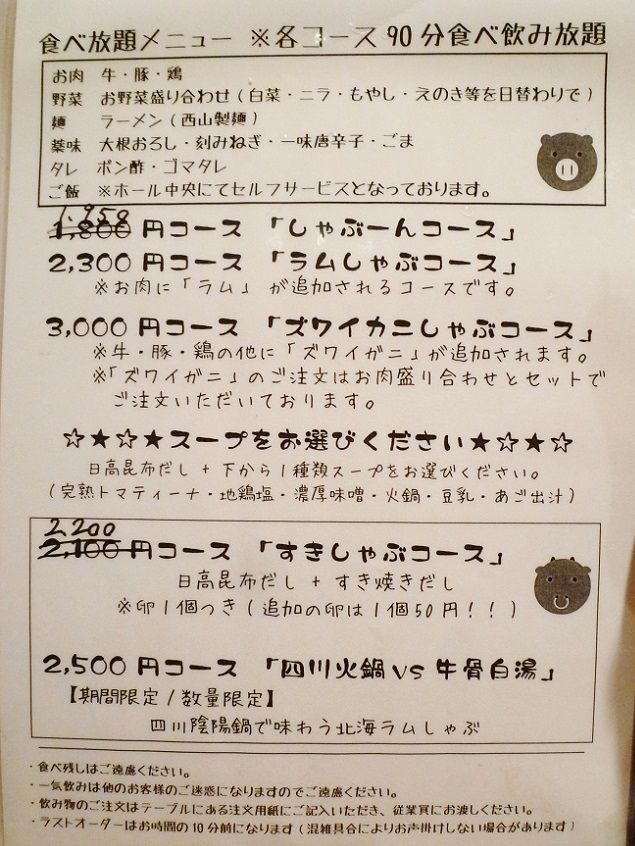 食べ放題メニュー ※各コース90分食べ飲み放題
お肉 牛・豚・鶏
野菜 お野菜盛り合わせ(白菜・ニラ・もやし・えのき等を日替わりで)
麺 ラーメン(西山製麺)
薬味 大根おろし・刻みねぎ・一味唐辛子・ごま
タレ ポン酢・ゴマタレ
ご飯 ※ホール中央にてセルフサービスとなっております。
1,958
1,800円コース 「しゃぶーんコース」
2,300円コース 「ラムしゃぶコース」
※お肉に「ラム」が追加されるコースです。
3,000円コース 「ズワイカニしゃぶコース」
※牛・豚・鶏の他に「ズワイガニ」が追加されます。
※「ズワイガニ」のご注文はお肉盛り合わせとセットで
ご注文いただいております。
☆★☆★スープをお選びください★☆★☆
日高昆布だし + 下から1種類スープをお選びください。
(完熟トマティーナ・地鶏塩・濃厚味噌・火鍋・豆乳・あご出汁)
2,200
2,100円コース 「すきしゃぶコース」
日高昆布だし + すき焼きだし
※卵1個つき(追加の卵は1個50円!!)
2,500円コース 「四川火鍋vs牛骨白湯」
【期間限定/数量限定】
四川陰陽鍋で味わう北海ラムしゃぶ
・食べ残しはご遠慮ください。
・一気飲みは他のお客様のご迷惑になりますのでご遠慮ください。
・飲み物のご注文はテーブルにある注文用紙にご記入いただき、従業員にお渡しください。
・ラストオーダーはお時間の10分前になります(混雑具合によりお声掛けしない場合があります)